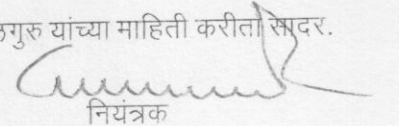 यांच्या माहिती करीता सादर.
नियंत्रक